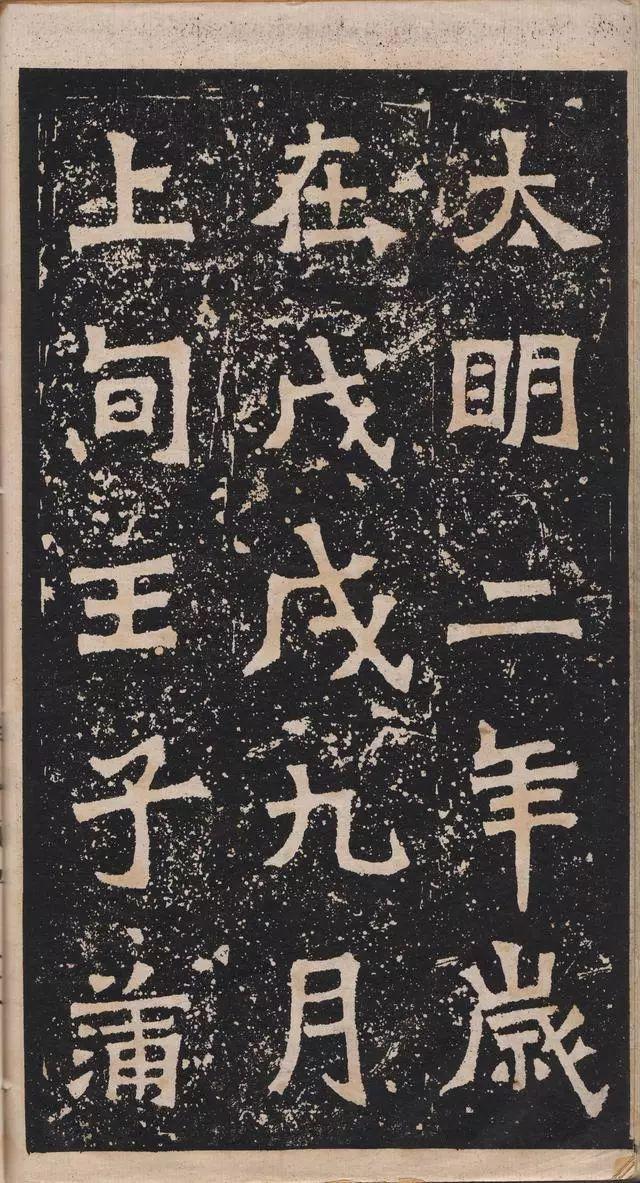 大明二年歲
在戊戌九月
上旬壬子蒲